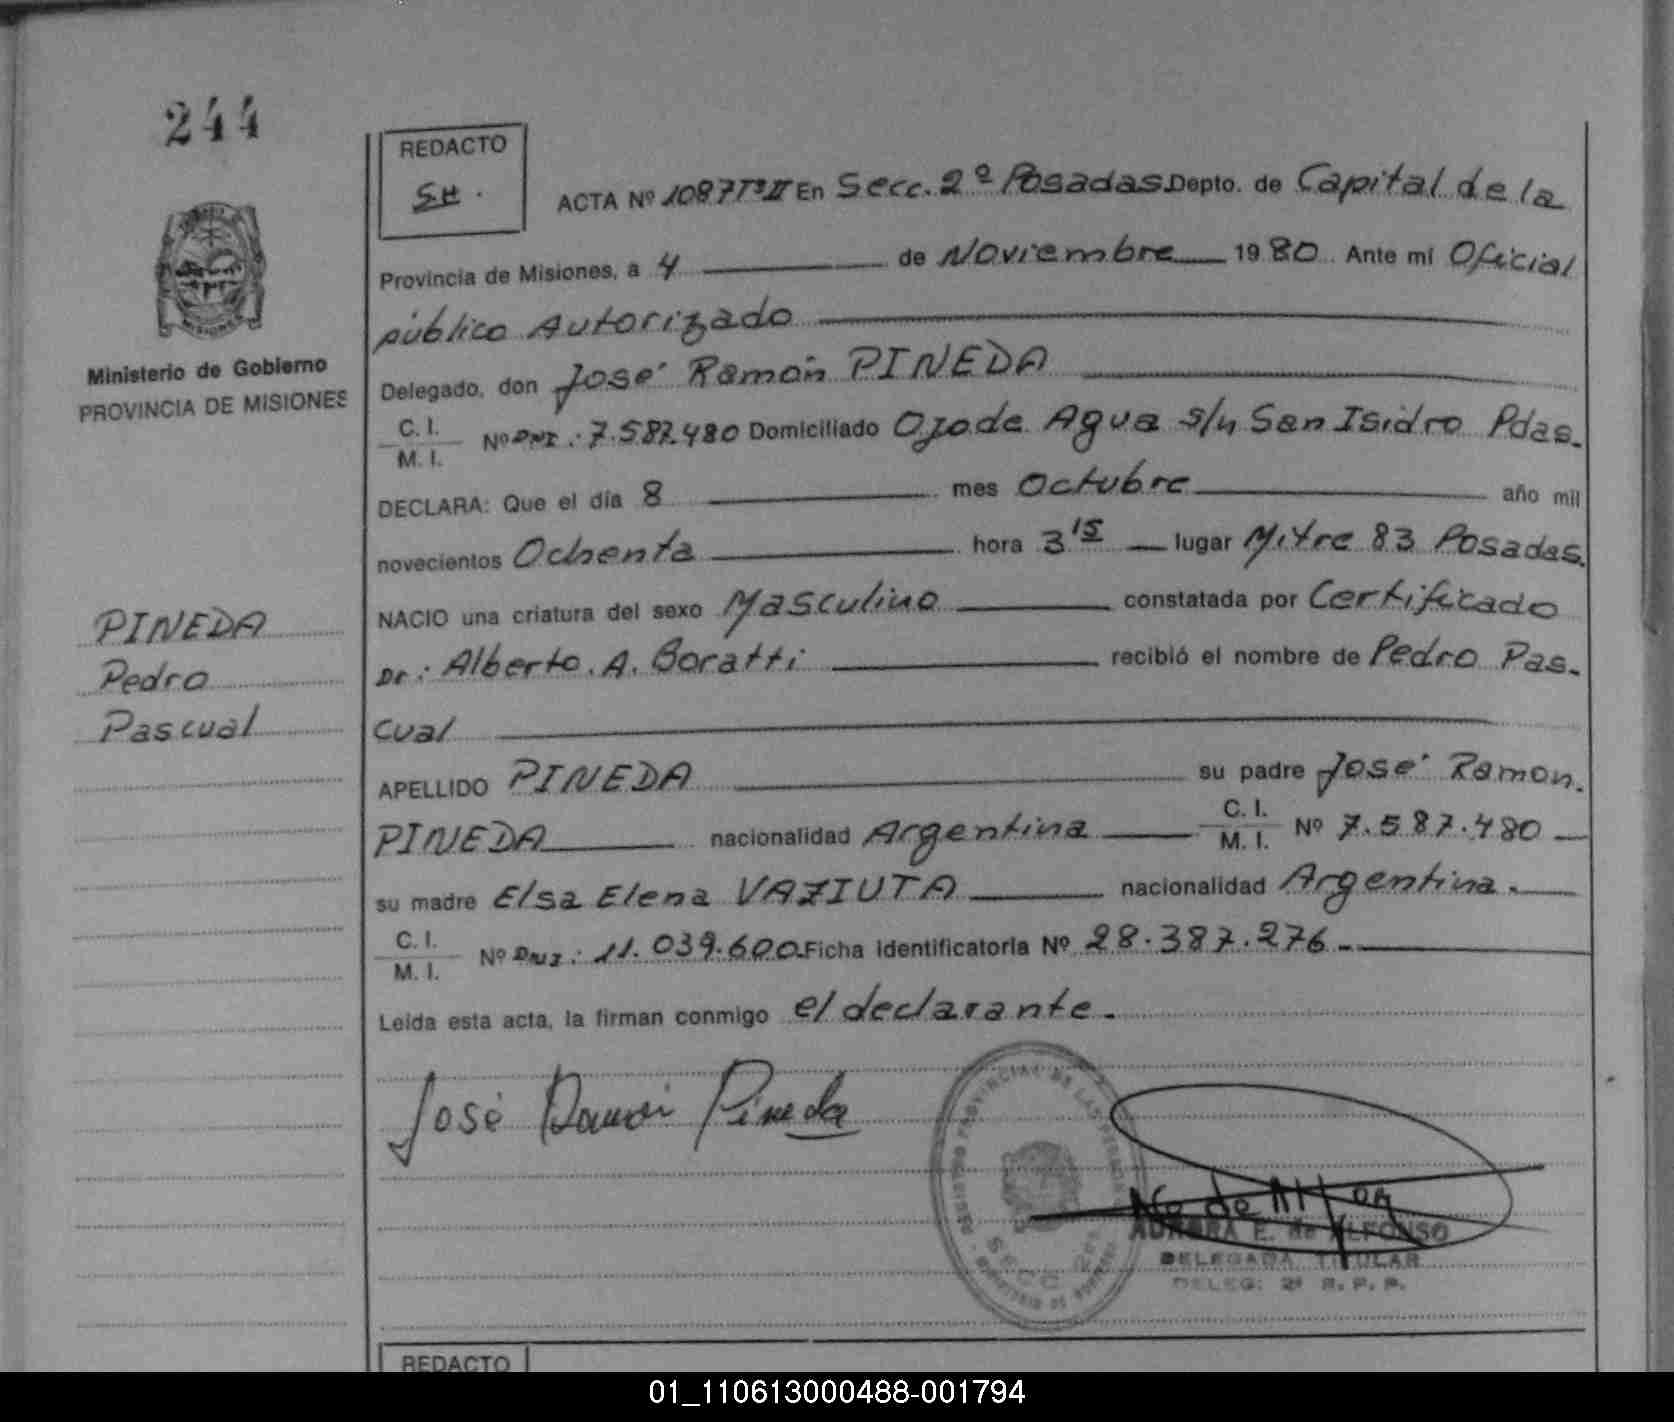 244
REDACTO
S.H.
ACTA Nº 1087 Tº II En Secc. 2º Posadas Depto. de Capital de la
Provincia de Misiones, a 4 de Noviembre 1980. Ante mi Oficial
público Autorizado
Delegado, don José Ramón PINEDA
C. I.
M. I. Nº DNI: 7.587.480 Domiciliado Ojo de Agua s/n San Isidro Pdas.
DECLARA: Que el día 8 mes Octubre año mil
novecientos Ochenta hora 3 15 lugar Mitre 83 Posadas.
NACIO una criatura del sexo Masculino constatada por Certificado
Dr: Alberto. A. Boratti recibió el nombre de Pedro Pas-
cual
APELLIDO PINEDA su padre José Ramon.
PINEDA nacionalidad Argentina C. I. M. I. Nº 7.587.480
su madre Elsa Elena VAZIUTA nacionalidad Argentina.
C. I.
M. I. Nº DNI: 11.039.600. Ficha identificatoria Nº 28.387.276.-
Leída esta acta, la firman conmigo el declarante.
José Ramón Pineda
Ministerio de Gobierno
PROVINCIA DE MISIONES
PINEDA
Pedro
Pascual
MISIONES
REGISTRO PROVINCIAL DE LAS PERSONAS
SECC. 2º
AURORA E. de ALFONSO
DELEGADA TITULAR
DELEG: 2ª R. P. P.
REDACTO
01_110613000488-001794